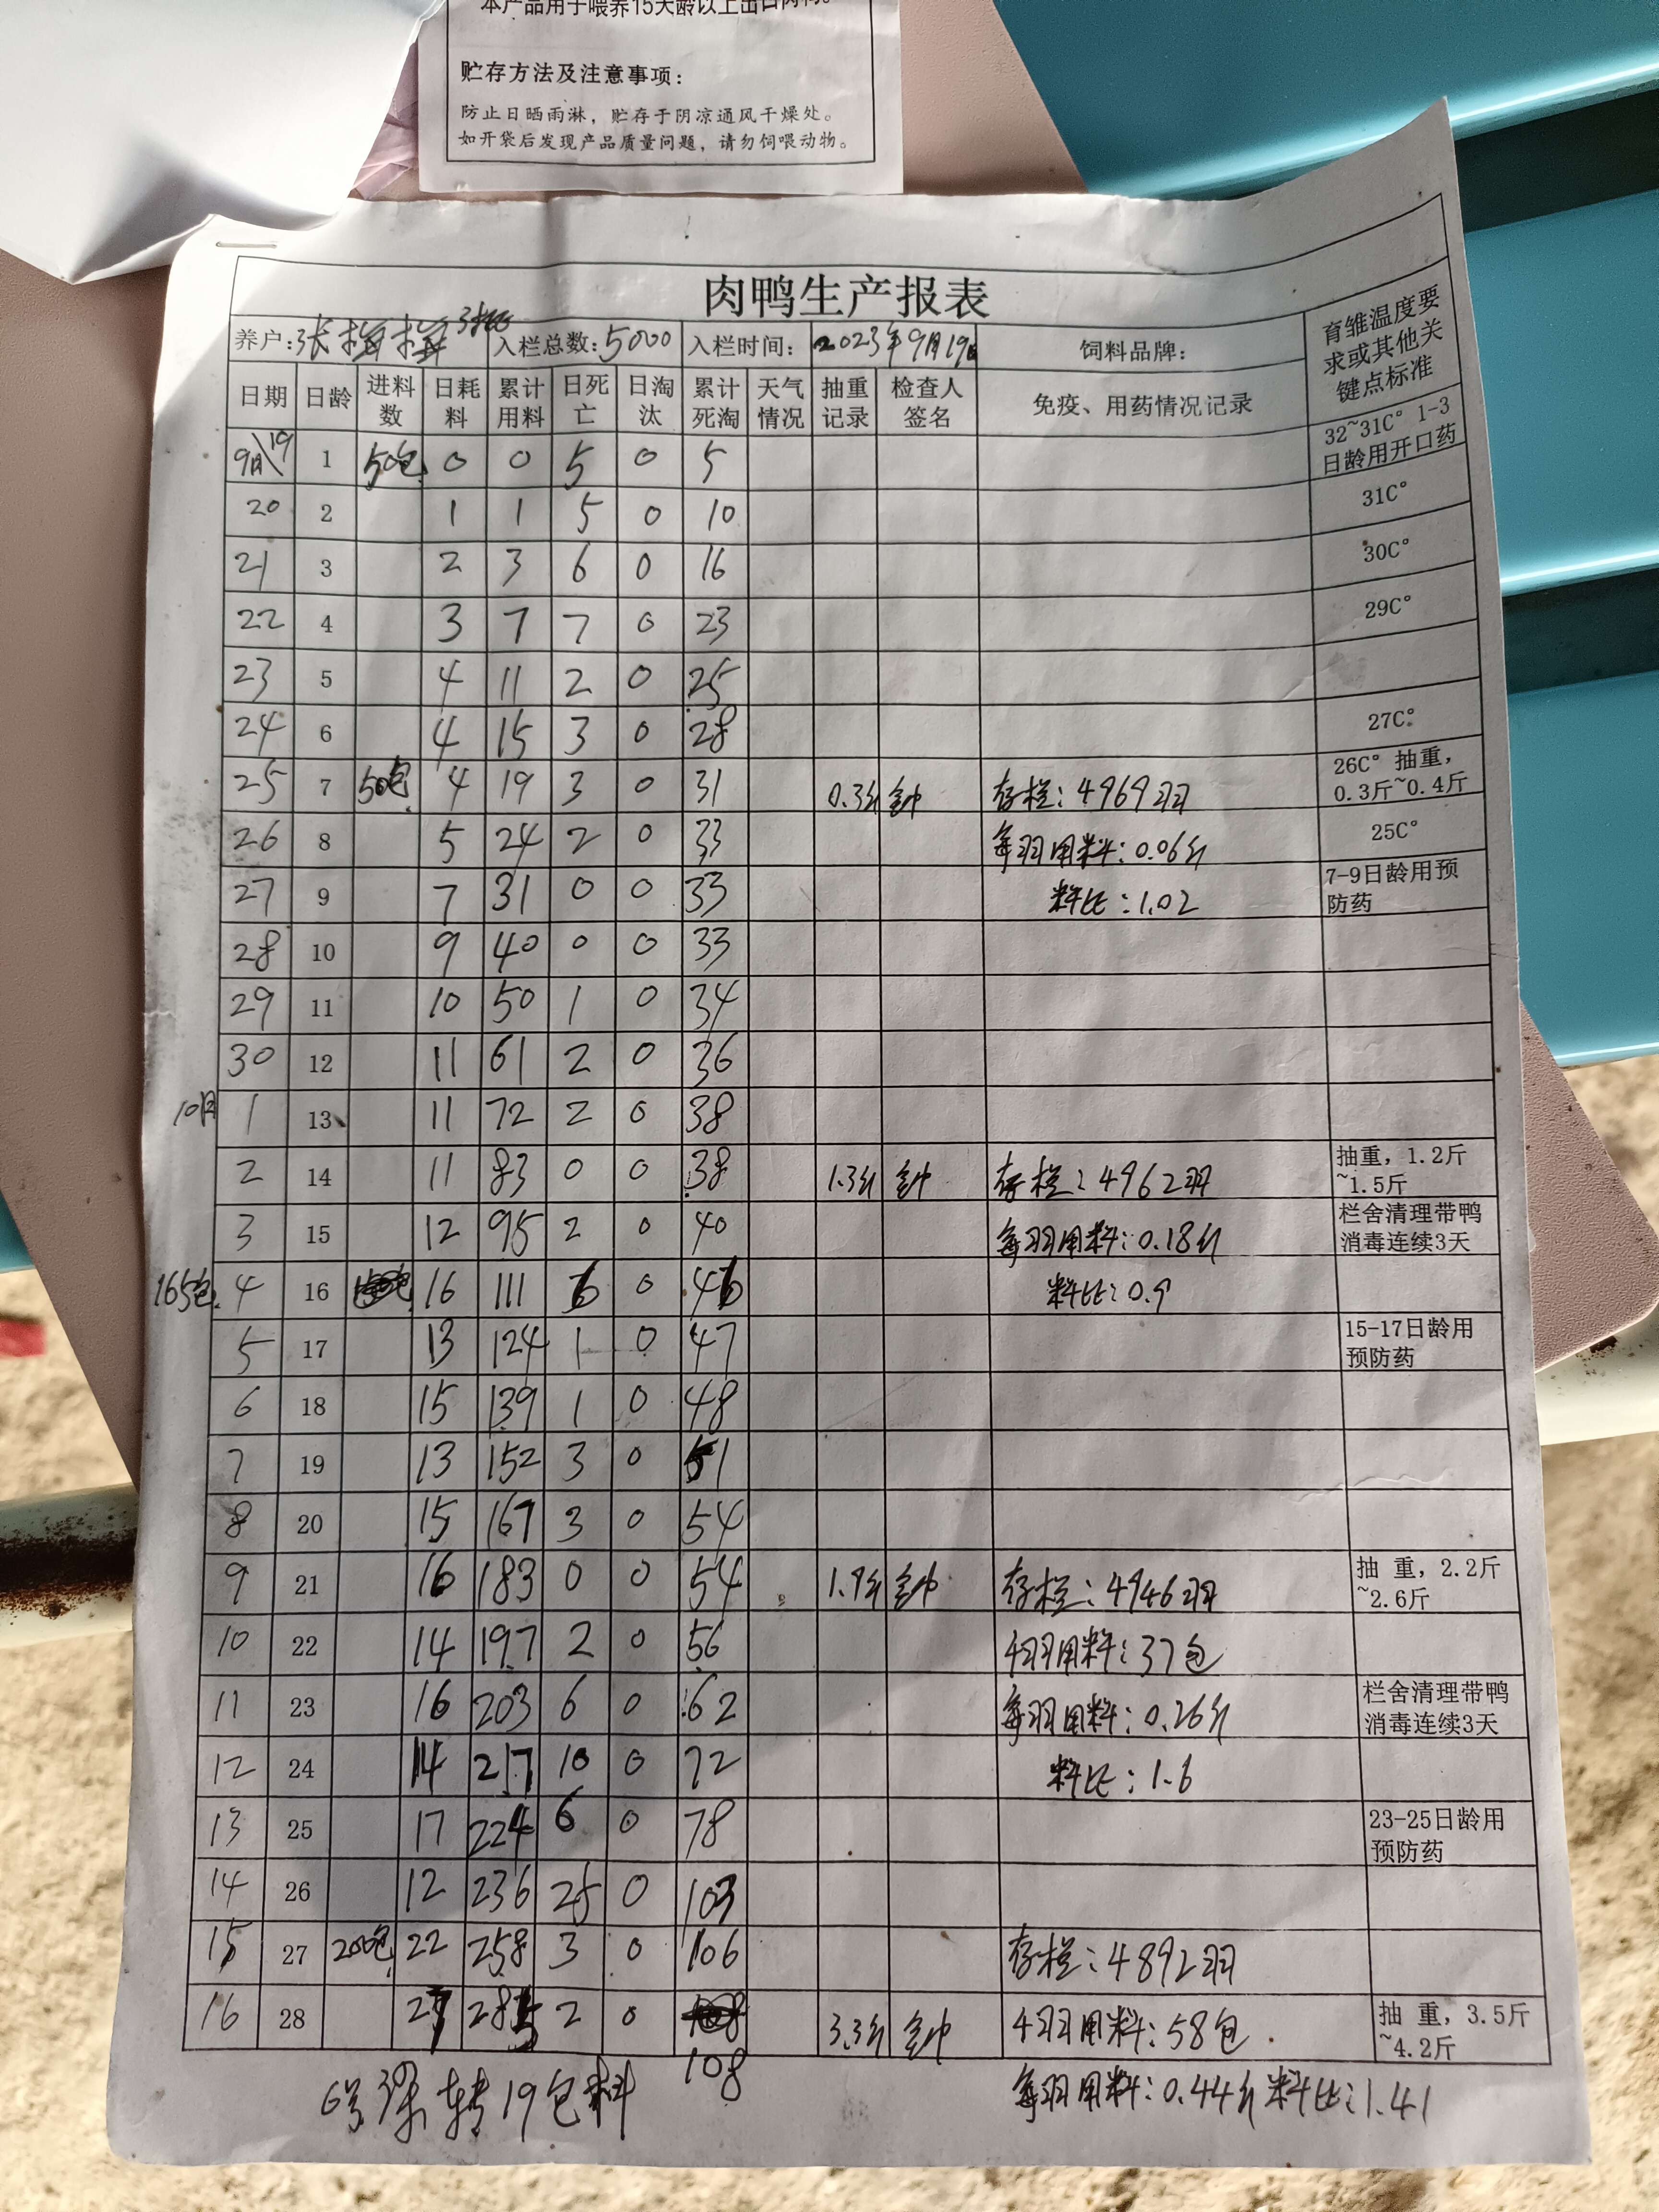 本产品用于喂养15天龄以上出口肉鸭。
贮存方法及注意事项：
防止日晒雨淋，贮存于阴凉通风干燥处。
如开袋后发现产品质量问题，请勿饲喂动物。
肉鸭生产报表
养户：张梅梅 入栏总数：5000 入栏时间：2023年9月19日 饲料品牌： 育雏温度要求或其他关键点标准
日期 日龄 进料数 日耗料 累计用料 日死亡 日淘汰 累计死淘 天气情况 抽重记录 检查人签名 免疫、用药情况记录
9月19 1 50包 0 0 5 0 5 32~31C° 1-3日龄用开口药
20 2 1 1 5 0 10 31C°
21 3 2 3 6 0 16 30C°
22 4 3 7 7 0 23 29C°
23 5 4 11 2 0 25
24 6 4 15 3 0 28 27C°
25 7 50包 4 19 3 0 31 0.3斤 存栏：4969羽 26C° 抽重，0.3斤~0.4斤
26 8 5 24 2 0 33 每羽用料：0.06斤 25C°
27 9 7 31 0 0 33 料比：1.02 7-9日龄用预防药
28 10 9 40 0 0 33
29 11 10 50 1 0 34
30 12 11 61 2 0 36
10月 1 13 11 72 2 0 38
2 14 11 83 0 0 38 1.3斤 存栏：4962羽 抽重，1.2斤~1.5斤
3 15 12 95 2 0 40 每羽用料：0.18斤 栏舍清理带鸭消毒连续3天
165包 4 16 16 111 6 0 46 料比：0.9
5 17 13 124 1 0 47 15-17日龄用预防药
6 18 15 139 1 0 48
7 19 13 152 3 0 51
8 20 15 167 3 0 54
9 21 16 183 0 0 54 1.9斤 存栏：4946羽 抽 重，2.2斤~2.6斤
10 22 14 197 2 0 56 4羽用料：37包
11 23 16 203 6 0 62 每羽用料：0.26斤 栏舍清理带鸭消毒连续3天
12 24 14 217 10 0 72 料比：1.6
13 25 17 224 6 0 78 23-25日龄用预防药
14 26 12 236 25 0 103
15 27 200包 22 258 3 0 106 存栏：4892羽
16 28 27 285 2 0 108 3.3斤 4羽用料：58包 抽 重，3.5斤~4.2斤
108
转19包料 每羽用料：0.44斤 料比：1.41